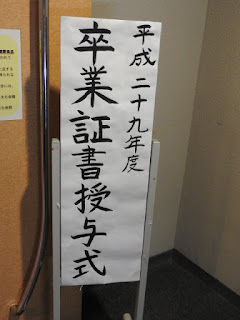 平成二十九年度
卒業証書授与式